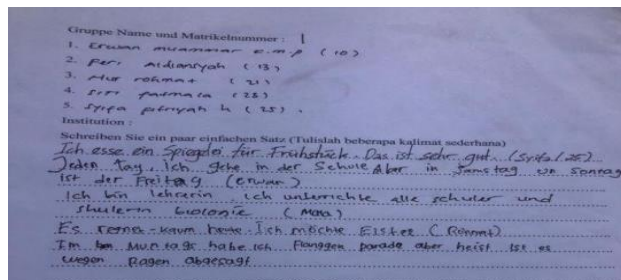 Gruppe Name und Matrikelnummer : 1
1. Erwan muammar e.m.p (10)
2. Feri Aldiansyah (13)
3. Nur rohmat (21)
4. Siti (28)
5. Syifa h (25).
Institution :
Schreiben Sie ein paar einfachen Satz (Tulislah beberapa kalimat sederhana)
Ich esse ein Spiegelei für Frühstück. Das ist sehr gut. (Syifa/25)
Jeden Tag, Ich gehe in der Schule Aber in Samstag un Sonntag
ist der Freitag (erwan)
Ich bin lehrerin, ich unterrichte alle schuler und
shulerin biologie (Mala)
Es - kaum heute. Ich möchte (Rohmat)
Im Muntags habe ich Flanggen parade aber heist ist es
wegen Ragen abgesagt